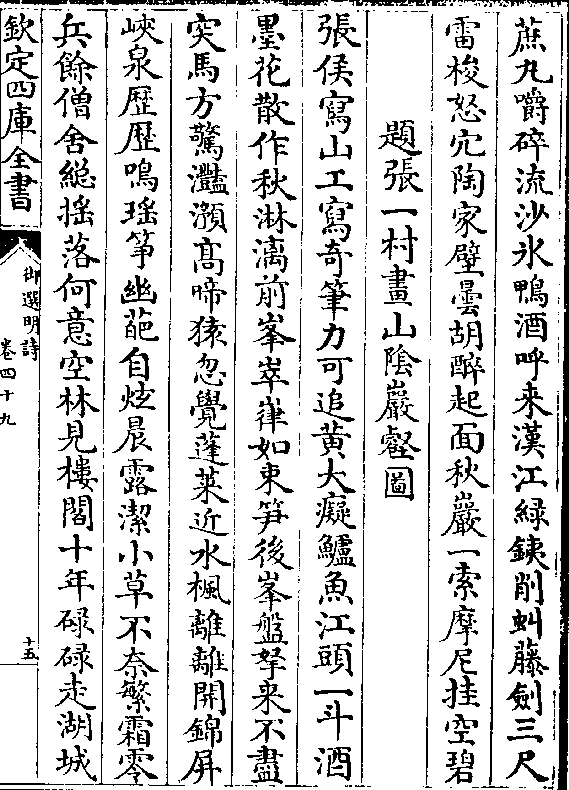 蔗丸嚼碎流沙氷鴨酒呼来漢江緑鋏削虯藤劍三尺
雷梭怒穴陶家壁曇胡醉起面秋巖一索摩尼挂空碧
題張一村畫山陰巖壑圖
張侯寫山工寫奇筆力可追黄大癡鱸魚江頭一斗酒
墨花散作秋淋漓前峯崒嵂如束笋後峯盤拏来不盡
突馬方驚灧澦髙啼猿忽覺蓬莱近水楓離離開錦屏
峽泉歴歴鳴瑶筝幽葩自炫晨露潔小草不奈繁霜零
兵餘僧舍總揺落何意空林見樓閣十年碌碌走湖城
欽定四庫全書
御選明詩
卷四十九
十五